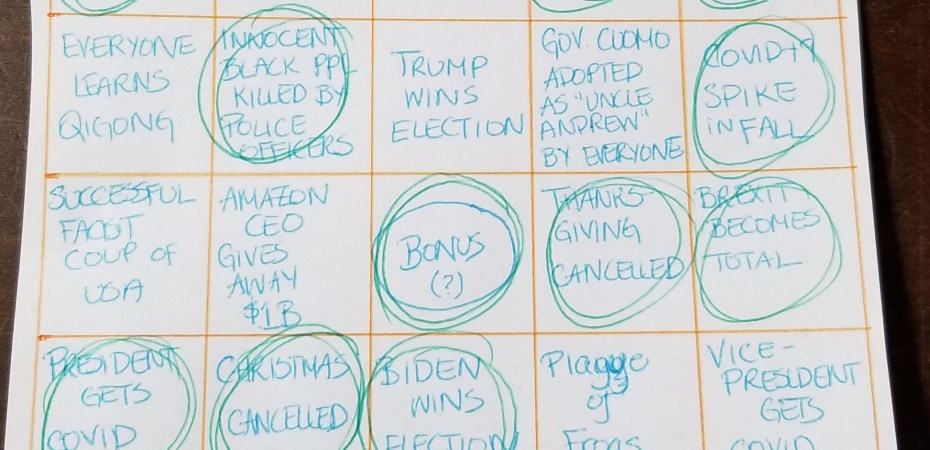 EVERYONE
LEARNS
QIGONG
INNOCENT
BLACK PPL
KILLED BY
POLICE
OFFICERS
TRUMP
WINS
ELECTION
GOV. CUOMO
ADOPTED
AS "UNCLE
ANDREW"
BY EVERYONE
COVID-19
SPIKE
IN FALL
SUCCESSFUL
COUP OF
USA
AMAZON
CEO
GIVES
AWAY
$1B
BONUS
(?)
THANKS-
GIVING
CANCELLED
BREXIT
BECOMES
TOTAL
PRESIDENT
GETS
COVID
CHRISTMAS
CANCELLED
BIDEN
WINS
ELECTION
Plague
of
Frogs
VICE-
PRESIDENT
GETS
COVID